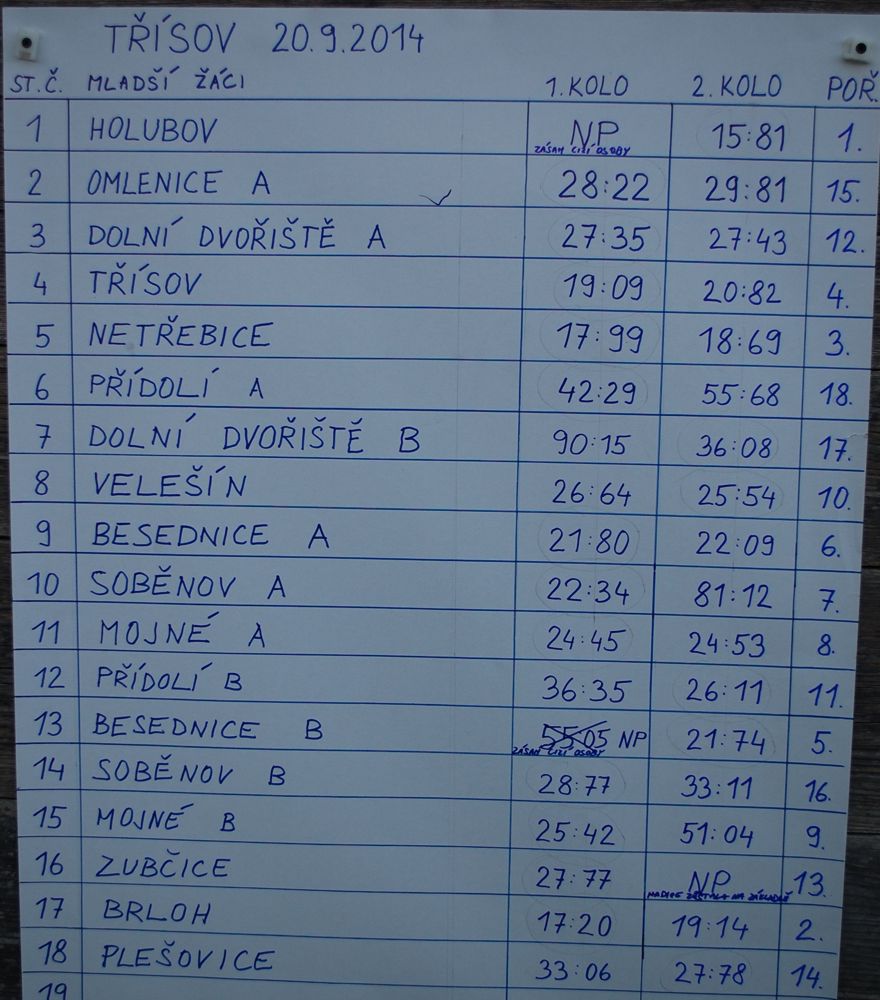 TŘÍSOV 20.9.2014
ST.Č. MLADŠÍ ŽÁCI 1.KOLO 2.KOLO POŘ.
1 HOLUBOV NP 15:81 1.
ZÁSAH CIZÍ OSOBY
2 OMLENICE A 28:22 29:81 15.
3 DOLNÍ DVOŘIŠTĚ A 27:35 27:43 12.
4 TŘÍSOV 19:09 20:82 4.
5 NETŘEBICE 17:99 18:69 3.
6 PŘÍDOLÍ A 42:29 55:68 18.
7 DOLNÍ DVOŘIŠTĚ B 90:15 36:08 17.
8 VELEŠÍN 26:64 25:54 10.
9 BESEDNICE A 21:80 22:09 6.
10 SOBĚNOV A 22:34 81:12 7.
11 MOJNÉ A 24:45 24:53 8.
12 PŘÍDOLÍ B 36:35 26:11 11.
13 BESEDNICE B 55:05 NP 21:74 5.
ZÁSAH CIZÍ OSOBY
14 SOBĚNOV B 28:77 33:11 16.
15 MOJNÉ B 25:42 51:04 9.
16 ZUBČICE 27:77 NP 13.
NA ZÁKLADNĚ
17 BRLOH 17:20 19:14 2.
18 PLEŠOVICE 33:06 27:78 14.
19